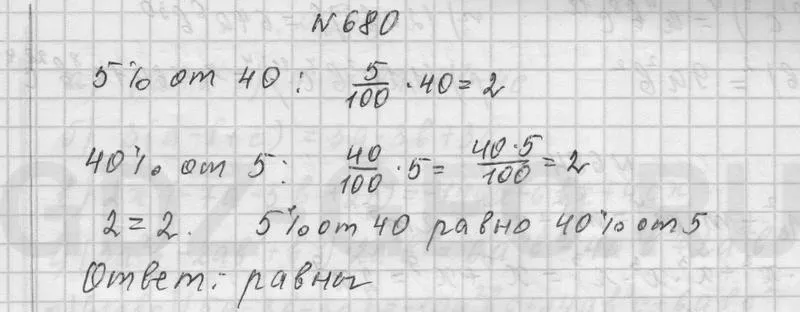 №680
5% от 40: 5/100 · 40 = 2
40% от 5: 40/100 · 5 = 40·5/100 = 2
2 = 2. 5% от 40 равно 40% от 5
Ответ: равны